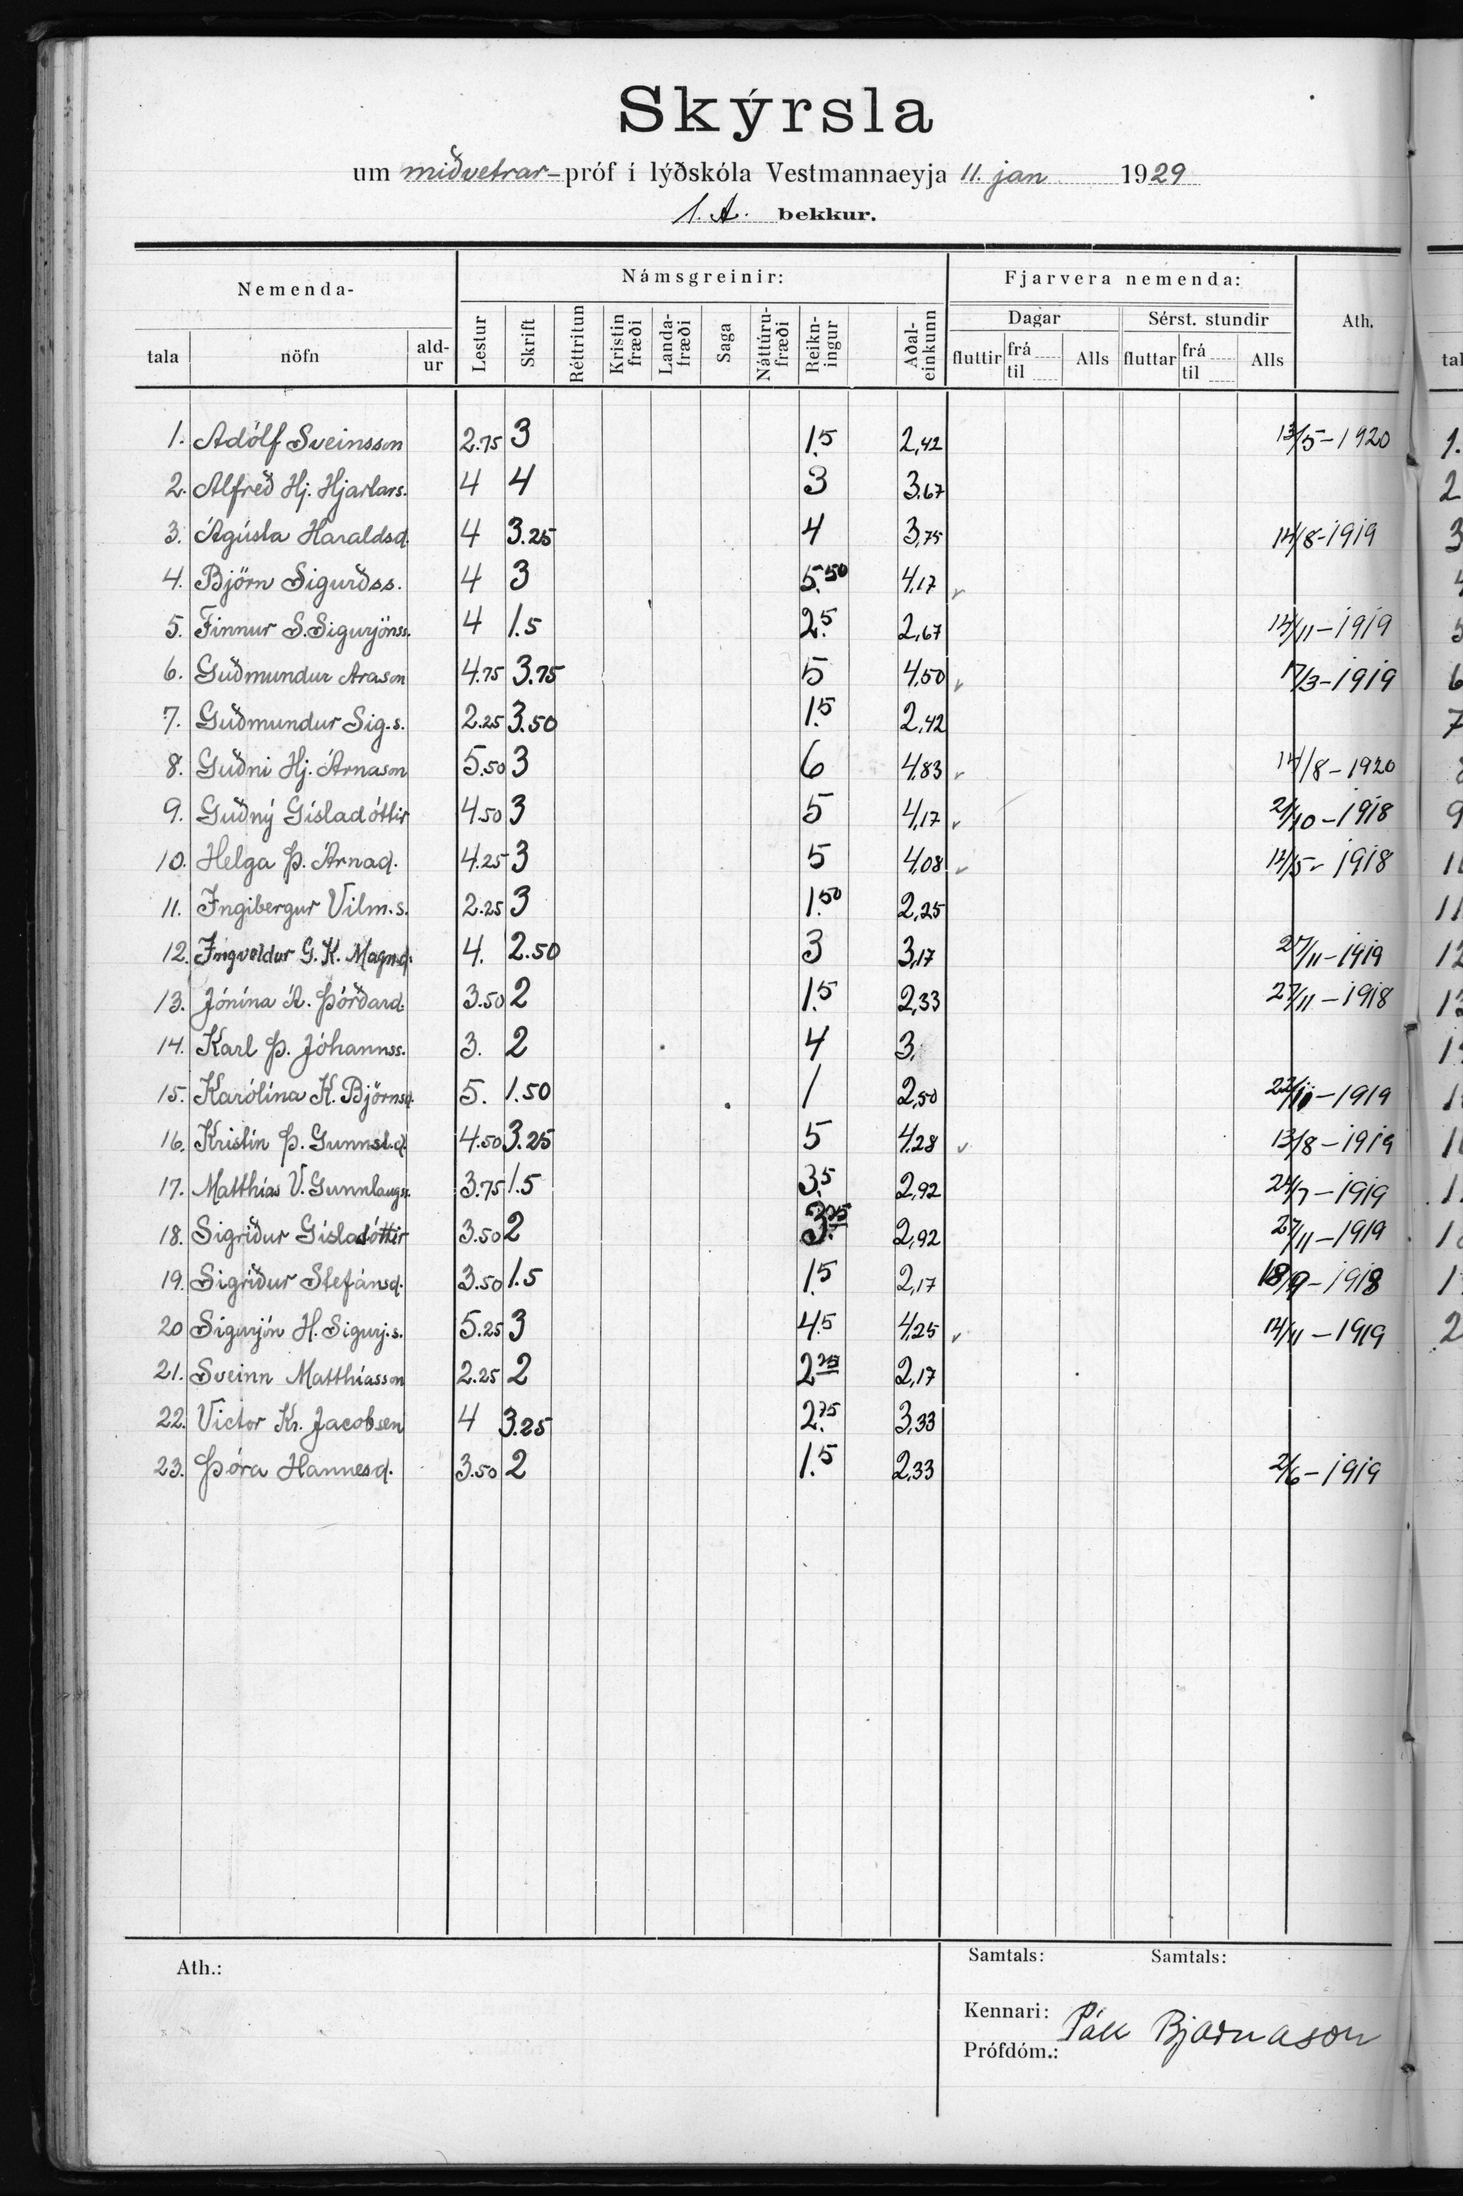 Skýrsla
um miðvetrar-próf í lýðskóla Vestmannaeyja 11. jan 1929
1. A. bekkur.
Nemenda- Námsgreinir: Fjarvera nemenda: Ath.
tala nöfn ald-ur Lestur Skrift Réttritun Kristin fræði Landa-fræði Saga Náttúru-fræði Reikn-ingur Aðal-einkunn Dagar Sérst. stundir
fluttir frá til Alls fluttar frá til Alls
1. Adólf Sveinsson 2.75 3 1.5 2,42 13/5-1920
2. Alfreð Hj. Hjartars. 4 4 3 3.67
3. Ágústa Haraldsd. 4 3.25 4 3,75 14/8-1919
4. Björn Sigurðss. 4 3 5.50 4,17 v
5. Finnur S. Sigurjónss. 4 1.5 2.5 2,67 12/11-1919
6. Guðmundur Arason 4.75 3.75 5 4,50 v 17/3-1919
7. Guðmundur Sig.s. 2.25 3.50 1.5 2,42
8. Guðni Hj. Árnason 5.50 3 6 4,83 v 14/8-1920
9. Guðný Gísladóttir 4.50 3 5 4,17 v 21/10-1918
10. Helga Þ. Árnad. 4.25 3 5 4,08 v 12/5-1918
11. Ingibergur Vilm.s. 2.25 3 1.50 2,25
12. Ingveldur G. K. Magn.d. 4. 2.50 3 3,17 27/11-1919
13. Jónína Á. Þórðard. 3.50 2 1.5 2,33 27/11-1918
14. Karl Þ. Jóhannss. 3. 2 4 3.
15. Karólína K. Björnsd. 5. 1.50 1 2,50 22/10-1919
16. Kristín Þ. Gunnst.d. 4.50 3.25 5 4,28 v 13/8-1919
17. Matthías V. Gunnlaugs. 3.75 1.5 3.5 2,92 24/7-1919
18. Sigríður Gísladóttir 3.50 2 3.25 2,92 27/11-1919
19. Sigríður Stefánsd. 3.50 1.5 1.5 2,17 18/9-1918
20 Sigurjón H. Sigurj.s. 5.25 3 4.5 4,25 v 12/11-1919
21. Sveinn Matthíasson 2.25 2 2.25 2,17
22. Victor Kr. Jacobsen 4 3.25 2.75 3,33
23. Þóra Hannesd. 3.50 2 1.5 2,33 2/6-1919
Ath.: Samtals: Samtals:
Kennari: Páll Bjarnason
Prófdóm.: